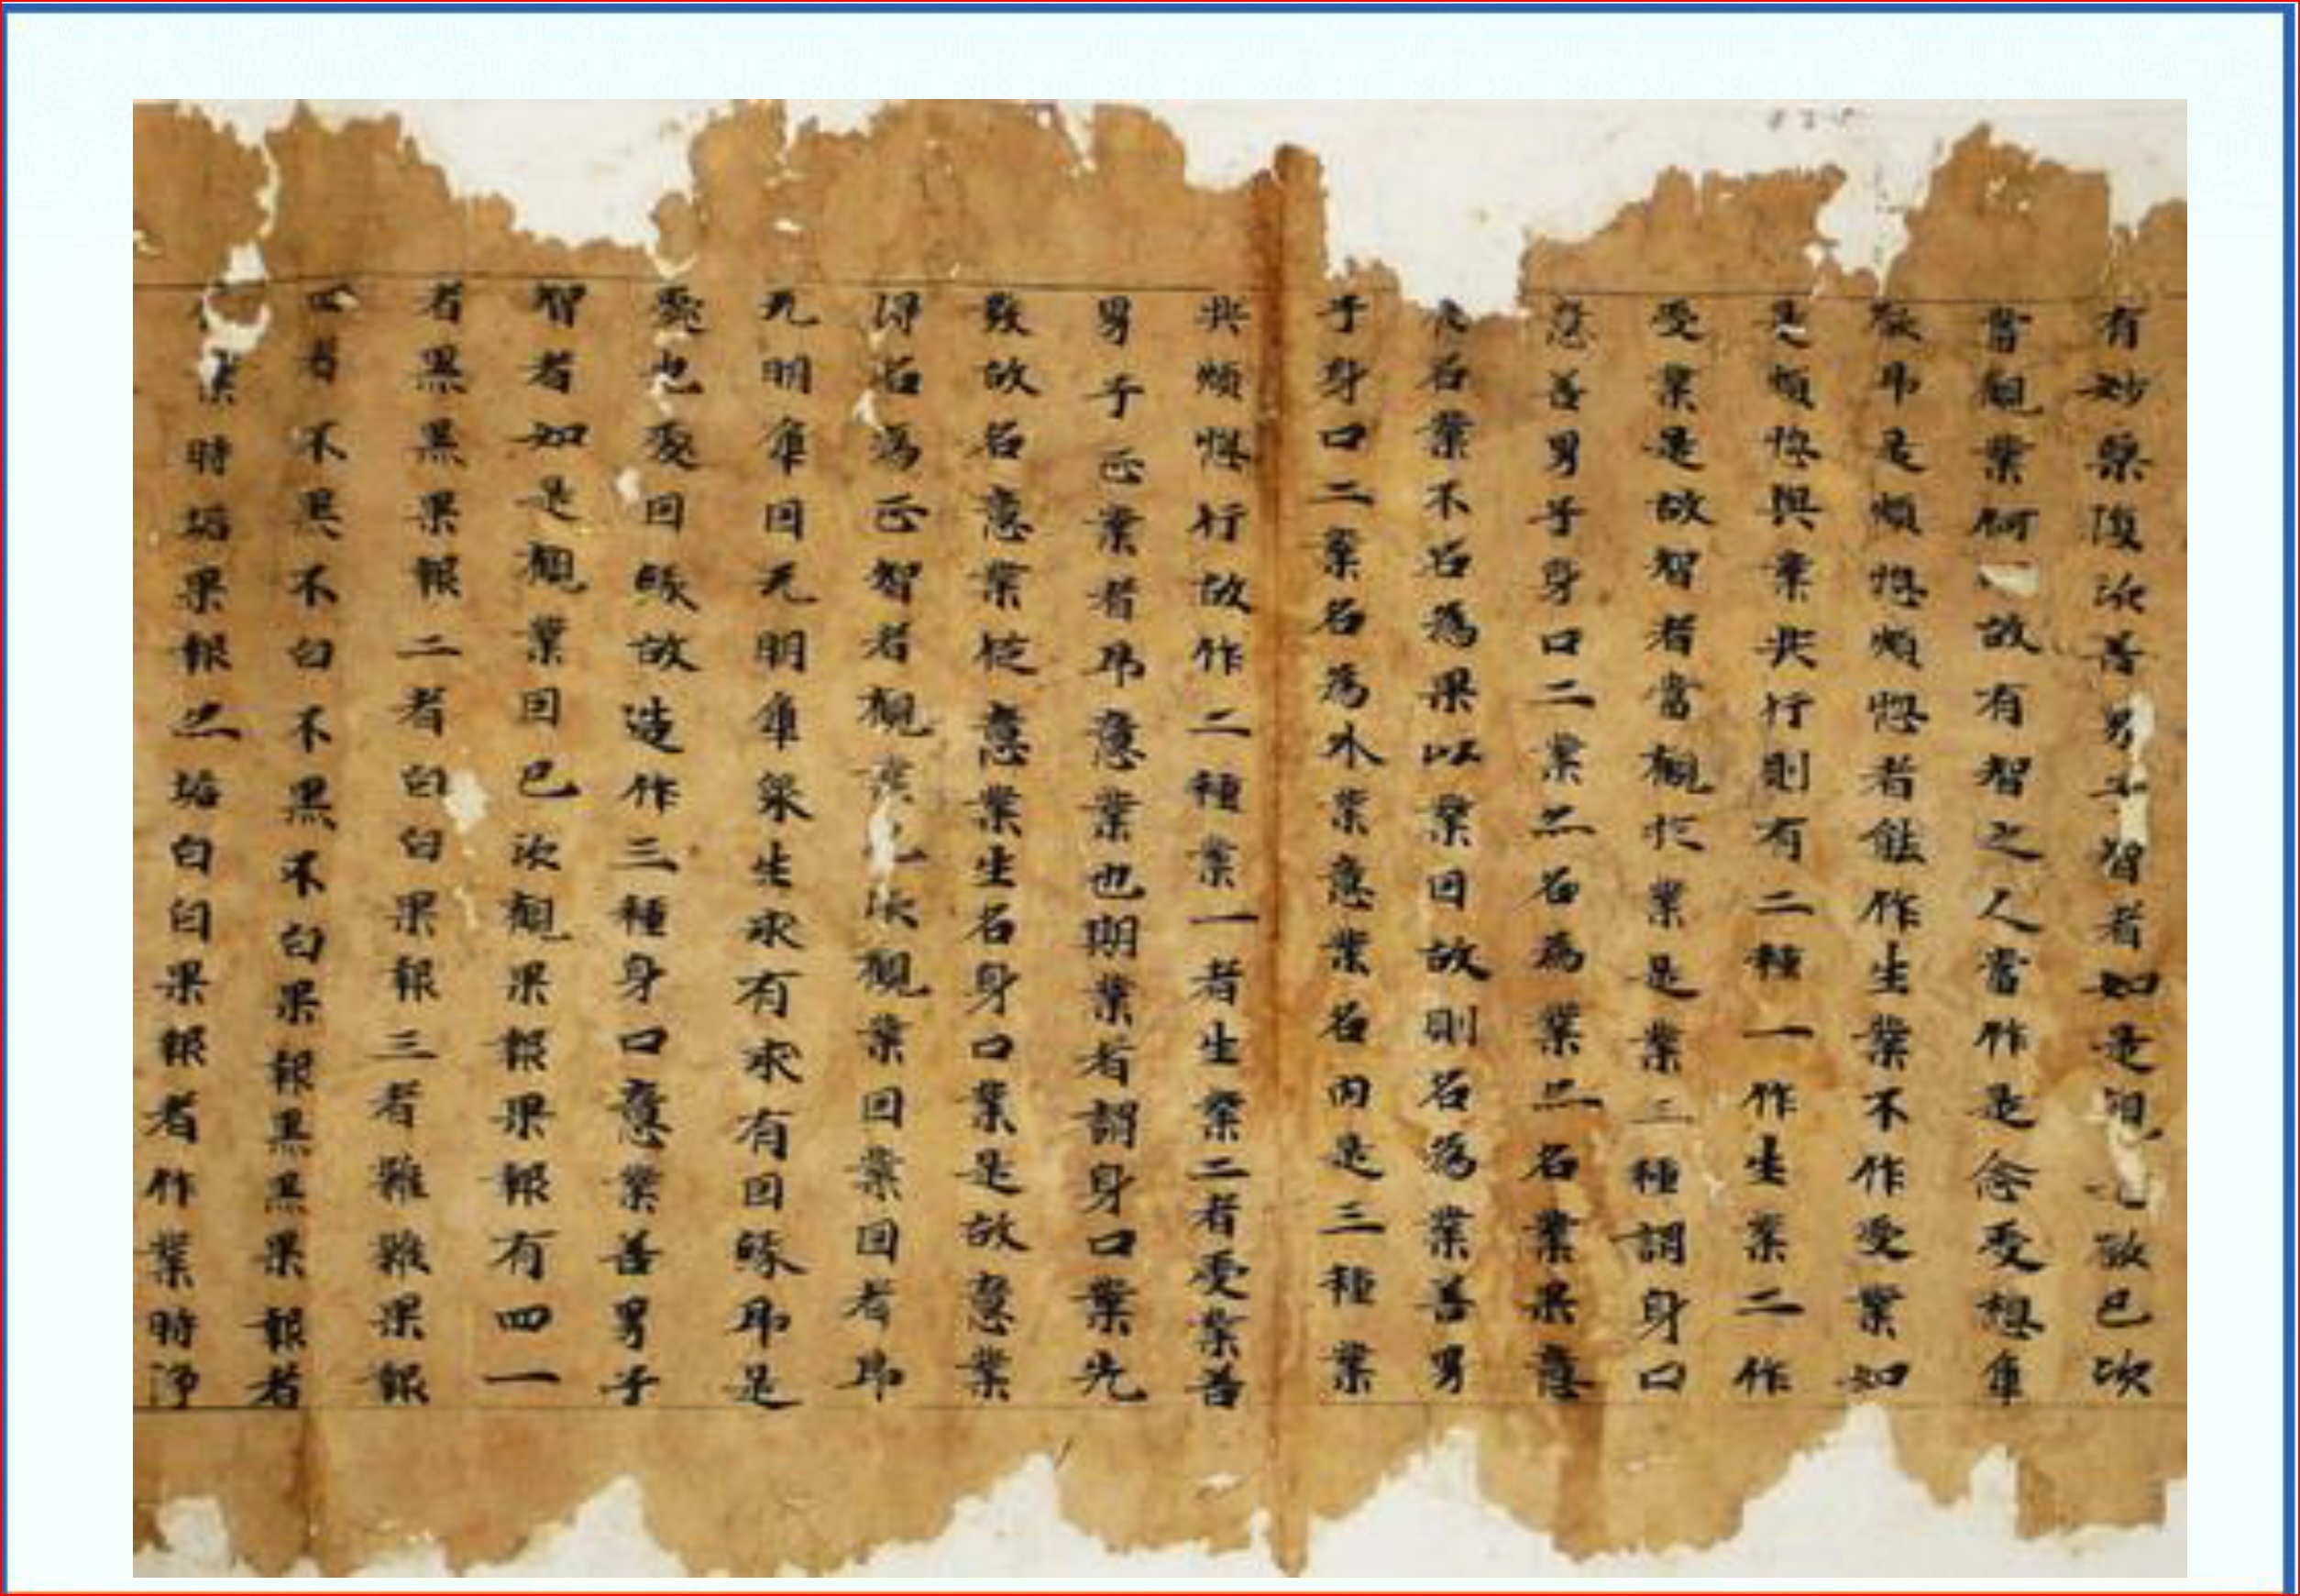 有妙藥復次善男子智者如是觀欲已次
當觀業何故有智之人當作是念受想觸
欲即是煩惱煩惱者能作生業不作受業如
是煩惱與業共行則有二種一作生業二作
受業是故智者當觀於業是業三種謂身口
意善男子身口二業亦名為業亦名業果意
名業不名為果以業因故則名為業善男
子身口二業名為外業意業名內是三種業
共煩惱行故作二種業一者生業二者受業善
男子正業者即意業也期業者謂身口業先
發故名意業從意業生名身口業是故意業
得名為正智者觀業已次觀業因業因者即
无明觸因无明觸眾生求有求有因緣即是
愛也愛因緣故造作三種身口意業善男子
智者如是觀業因已次觀果報果報有四一
者黑黑果報二者白白果報三者雜雜果報
四者不黑不白不黑不白果報黑黑果報者
作業時垢果報亦垢白白果報者作業時淨